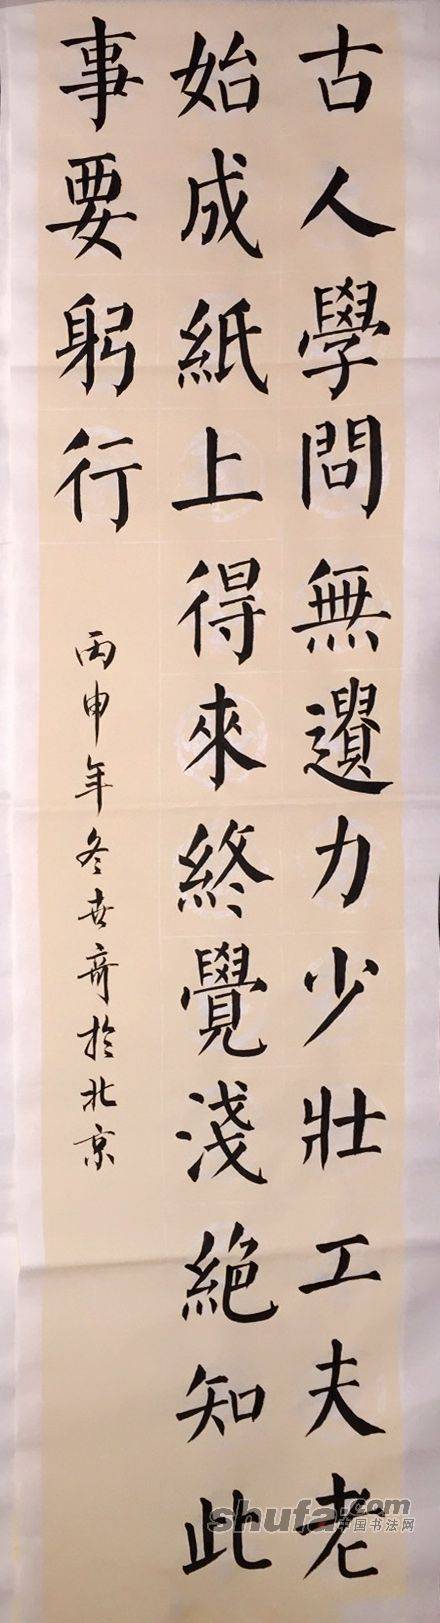 古人學問無遺力少壯工夫老
始成紙上得來終覺淺絕知此
事要躬行
丙申年冬世齊於北京
shufa.com
中国书法网